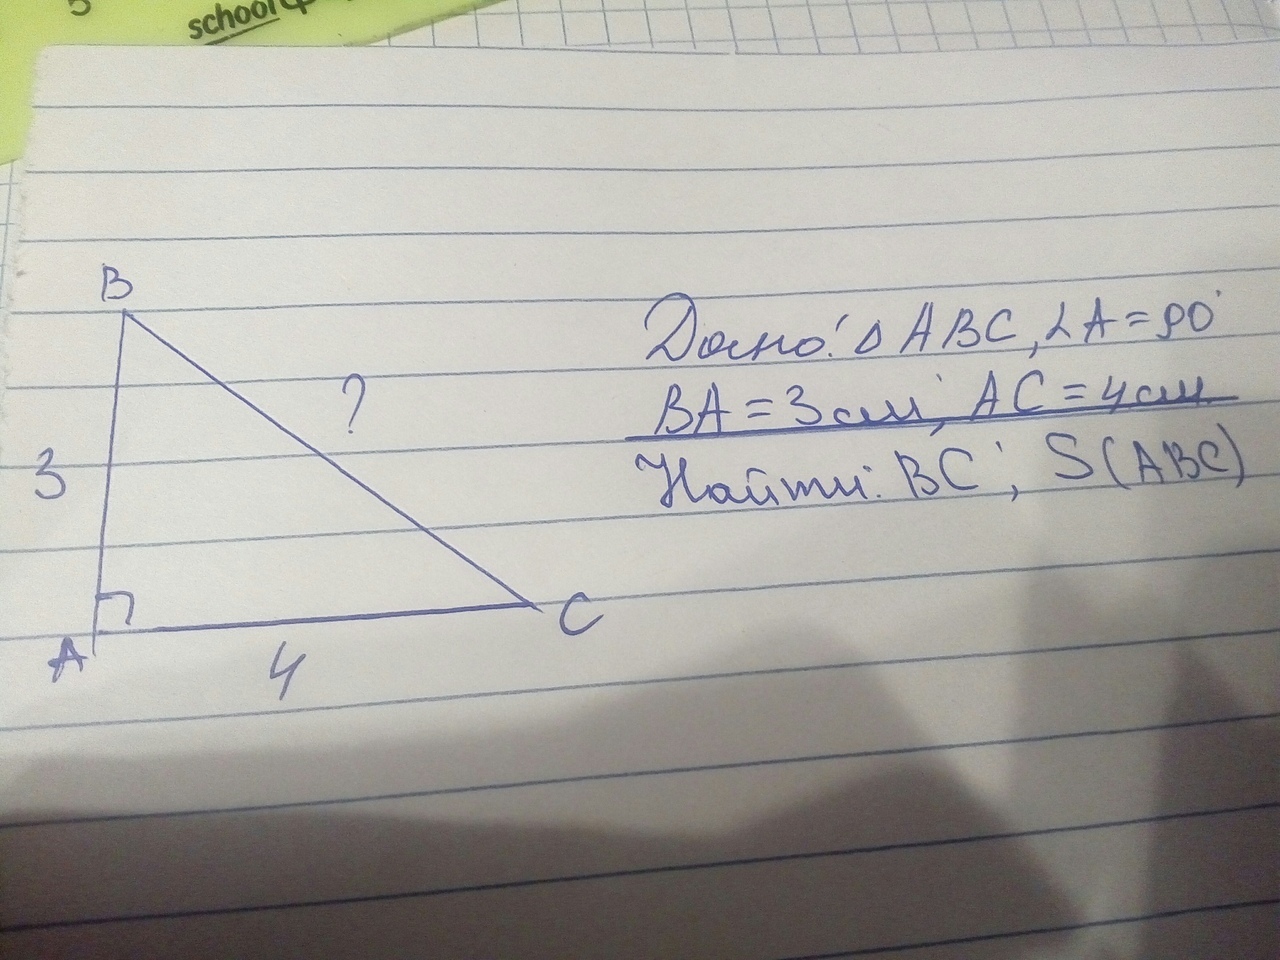 school
B
?
3
A
4
C
Дано: △ ABC, ∠A=90°
BA=3см; AC=4см
Найти: BC; S(ABC)